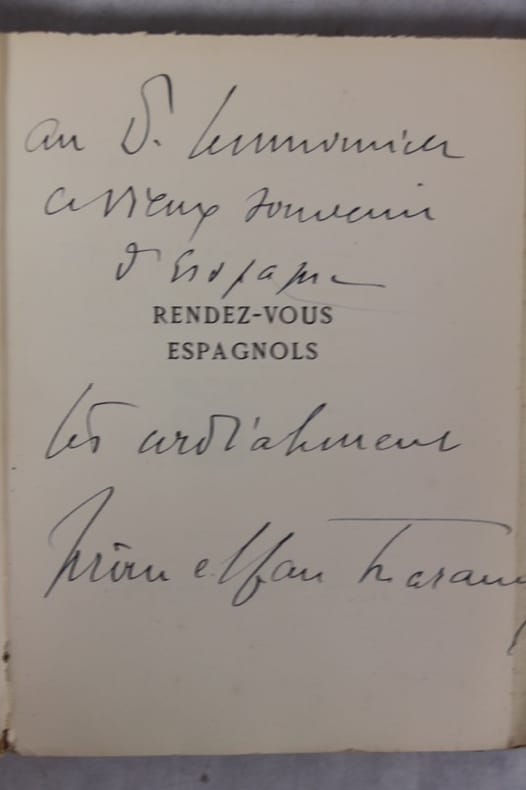 au D. Lemmonier
ce vieux souvenir
d'Espagne
RENDEZ-VOUS
ESPAGNOLS
très cordialement
Jérôme et Jean Tharaud